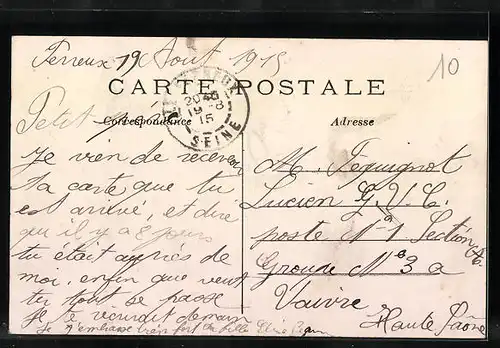 Perreux 19 Aout 1915
10
LE PERREUX
20 30
19 - 8
15
SEINE
CARTE POSTALE
Correspondance
Adresse
Petit père
Je vien de recevoir
ta carte que tu
est arrivé, et dire
qu il y a 8 jours
tu était auprès de
moi, enfin que veut
tu tout se passe
Je te
demain
Je t'embrasse bien fort ta fille
M. Pequignot
Lucien G. V. C.
poste N° 1 Section
Groupe N° 3 a
Vaivre
Haute Saône